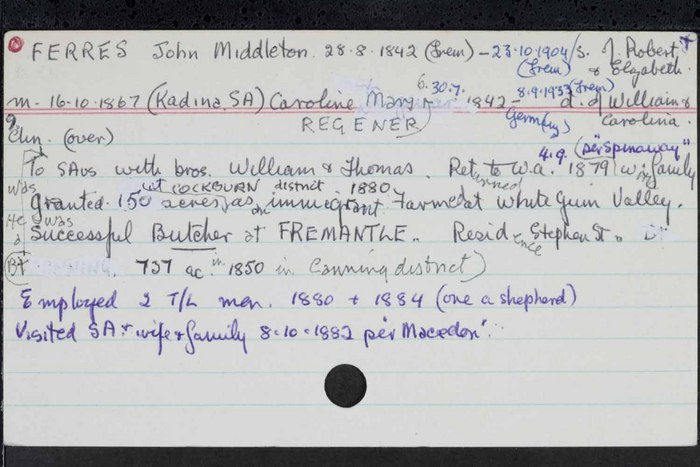 FERRES John Middleton. 28.8.1842 (Frem) - 23.10.1904 (Frem) / s. of Robert & Elizabeth.
m. 16.10.1867 (Kadina, SA) Caroline Mary REGENER 6.30.7. 1842 - (Germany) 8.9.1933 (Frem) d. of William & Carolina.
9 Chn. (over) 4.9. (per "Spinaway"
To SAus with bros. William & Thomas. Returned to W.A. 1879 w. family
was Granted 150 acres at COCKBURN district 1880, as an immigrant. Farmed at White Gum Valley.
He was a Successful Butcher at FREMANTLE. Residence Stephen St.
(BT 737 ac. in 1850 in Canning district)
Employed 2 T/L men. 1880 + 1884 (one a shepherd)
Visited SA + wife + family 8.10.1882 per "Macedon".